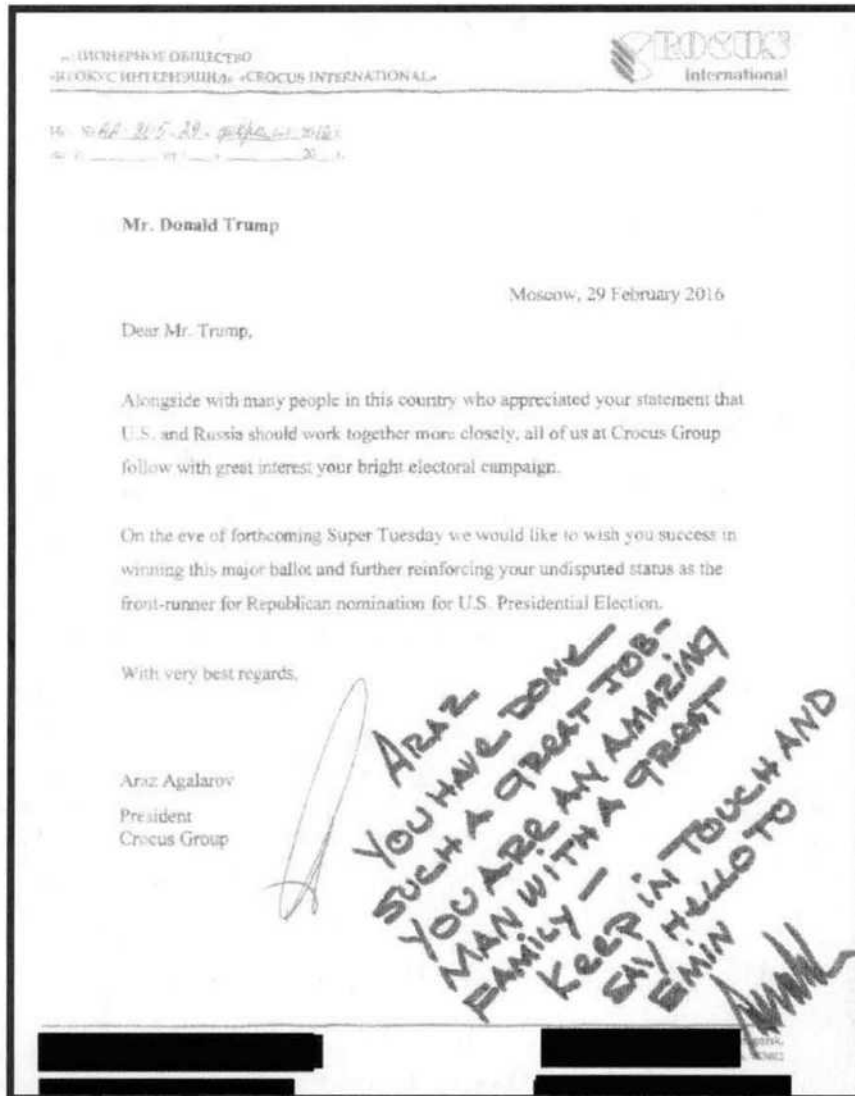 ОБЩЕСТВО
«CROCUS INTERNATIONAL»
CROCUS
International
20
Mr. Donald Trump
Moscow, 29 February 2016
Dear Mr. Trump,
Alongside with many people in this country who appreciated your statement that
U.S. and Russia should work together more closely, all of us at Crocus Group
follow with great interest your bright electoral campaign.
On the eve of forthcoming Super Tuesday we would like to wish you success in
winning this major ballot and further reinforcing your undisputed status as the
front-runner for Republican nomination for U.S. Presidential Election.
With very best regards,
Araz Agalarov
President
Crocus Group
ARAZ
YOU HAVE DONE
SUCH A GREAT JOB-
YOU ARE AN AMAZING
MAN WITH A GREAT
FAMILY —
KEEP IN TOUCH AND
SAY HELLO TO
EMIN